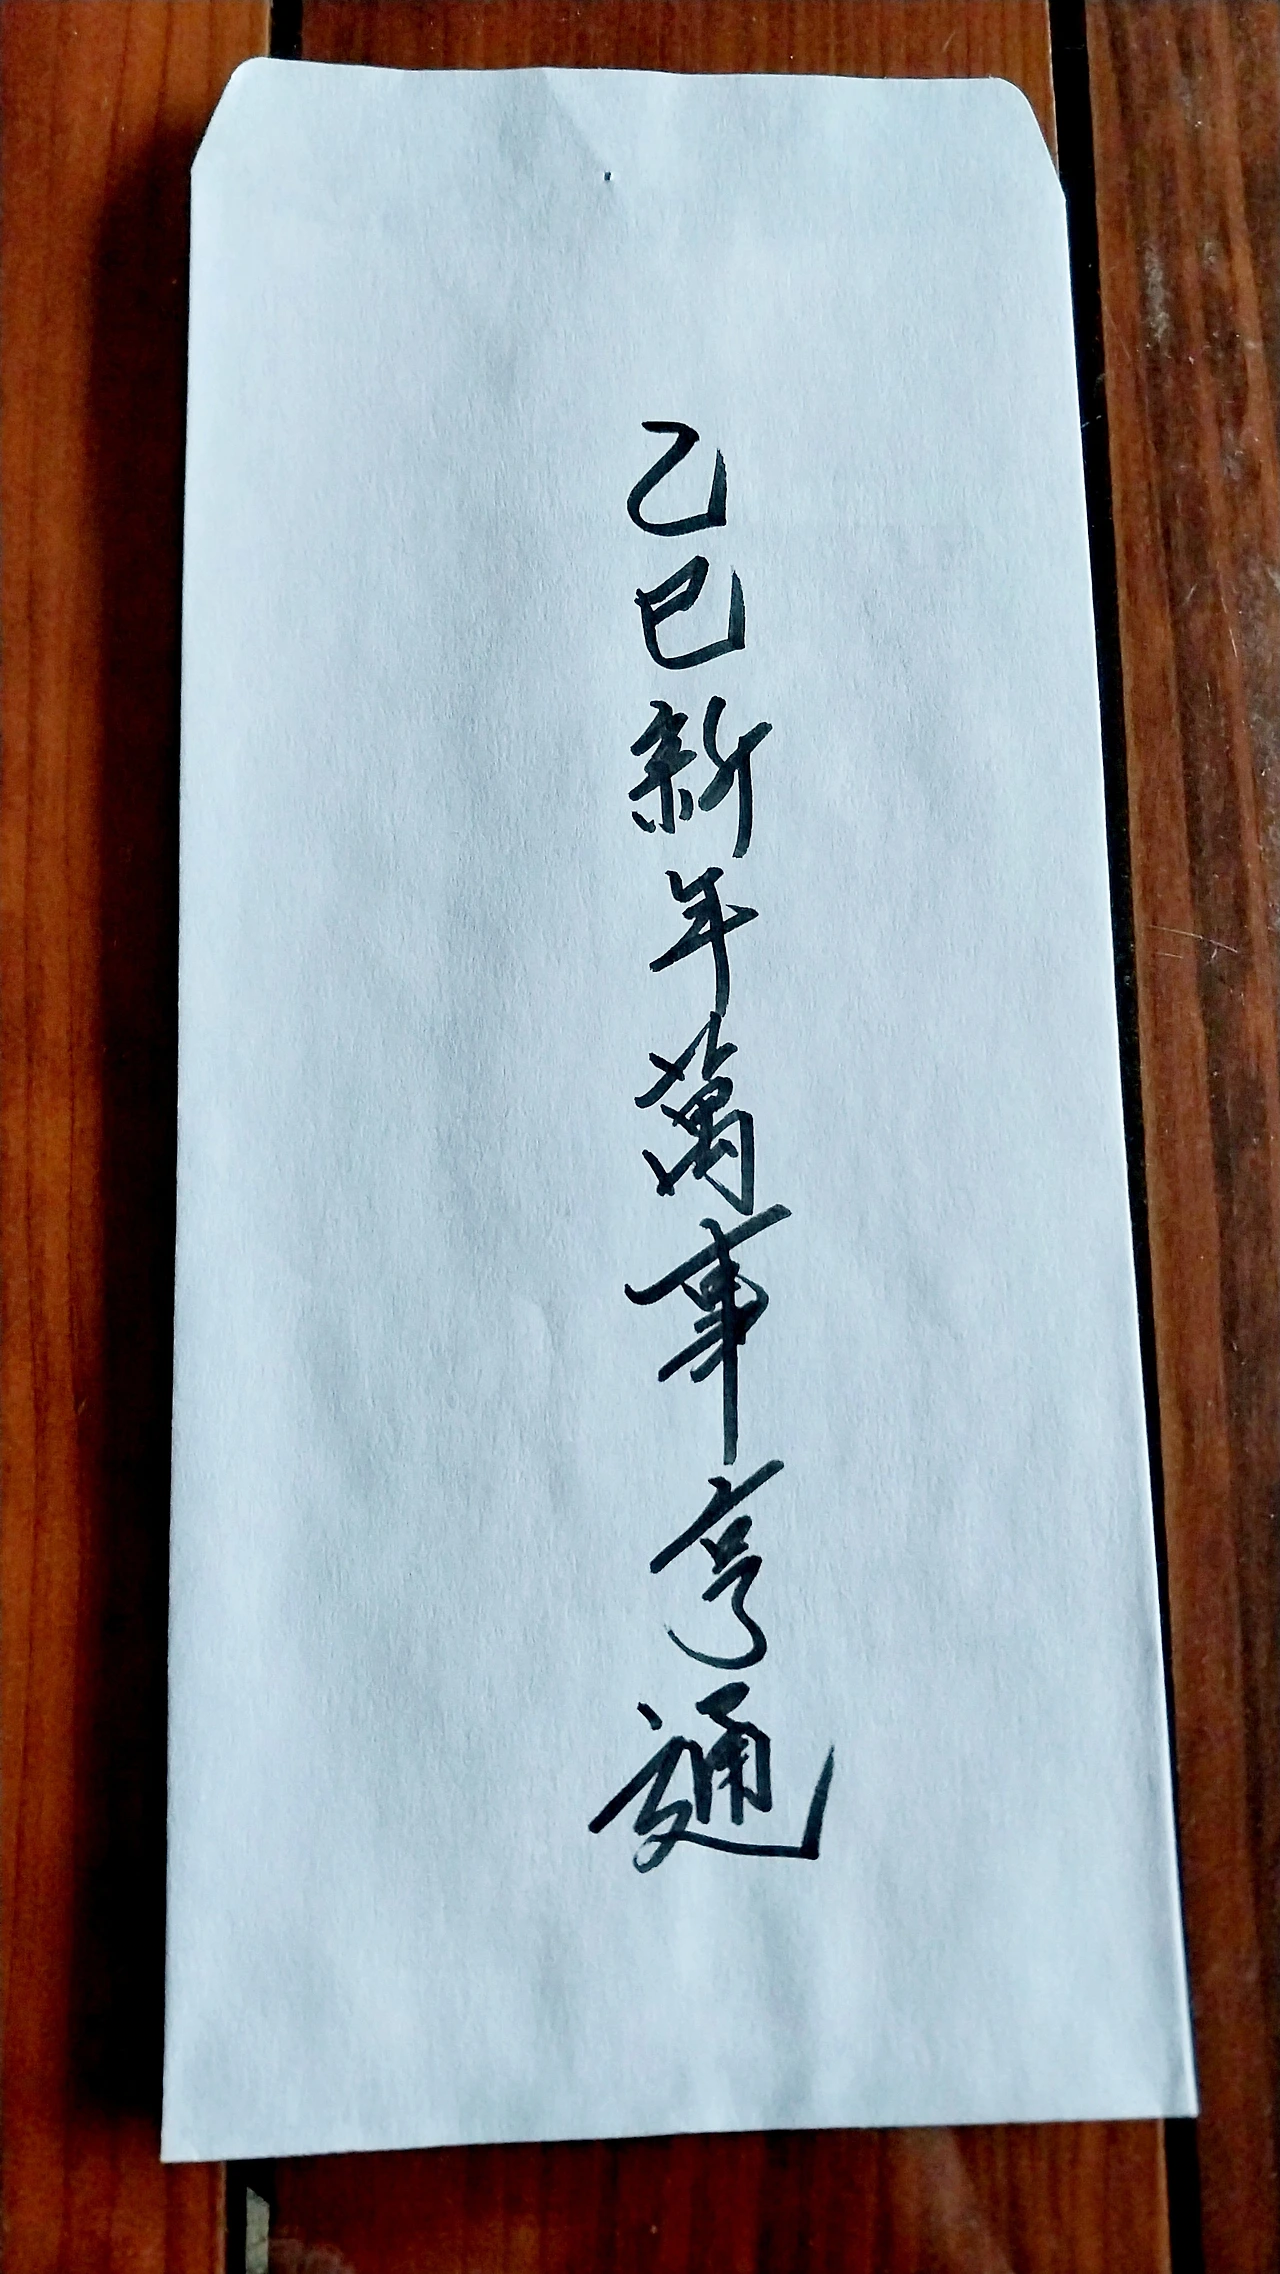 乙巳新年萬事亨通